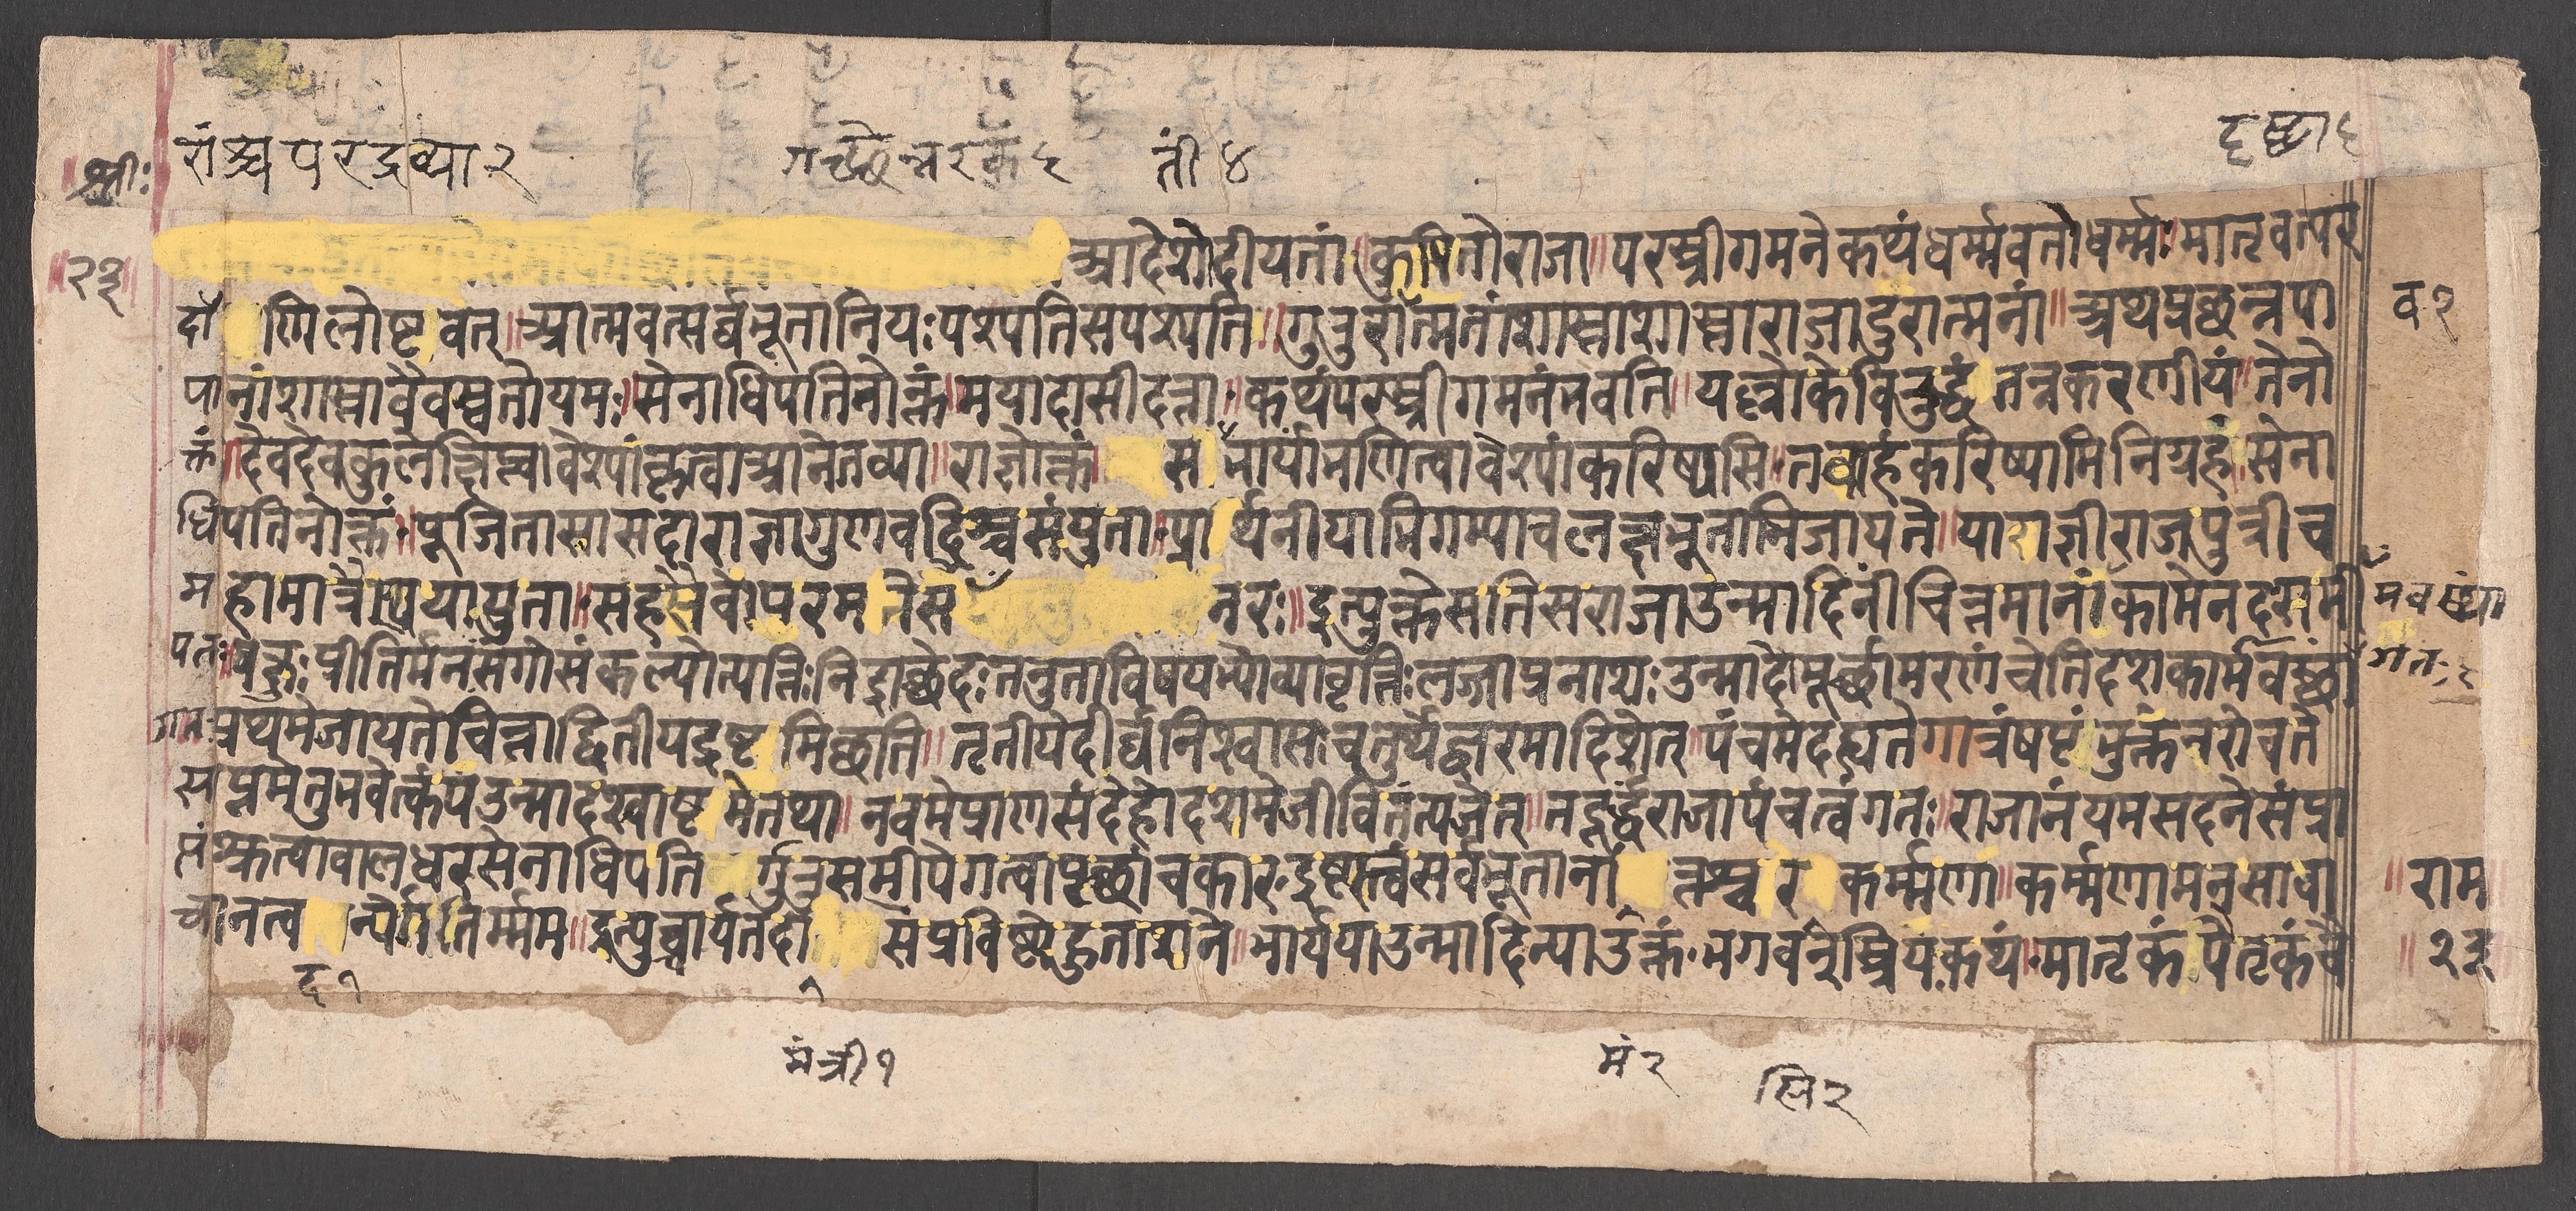 रांश्च परद्रव्या २ गच्छेन्नरकं ६ तीं ४ दृष्ट्वा ६
श्रीः
॥२३॥ आदेशोदीयतां॥कुपितोराजा॥परस्त्रीगमनेकथंधर्म्मवतोधर्म्मः॥मातृवत्पर
दा णिलोष्टवत्॥आत्मवत्सर्व्वभूतानियःपश्यतिसपश्यति॥गुरुरात्मवतांशास्ताशास्ताराजादुरात्मनां॥अथप्रछन्नपा व १
पानांशास्तावैवस्वतोयमः॥सेनाधिपतिनोक्तं॥मयादासीदत्ता॥कथंपरस्त्रीगमनंभवति॥यल्लोकेविरुद्धंतन्नकरणीयं॥तेनो
क्तं॥देवदेवकुलेक्षिप्त्वावेश्यांकृत्वाआनेतव्या॥राज्ञोक्तं॥ स भार्यांभणित्वावेश्यांकरिष्यसि॥तवाहंकरिष्यामिनिग्रहं॥सेना
धिपतिनोक्तं॥पूजितासासदाराज्ञागुणवद्भिश्चसंयुता॥प्रार्थनीयाभिगम्याचलक्ष्यभूताभिजायते॥याराज्ञीराजपुत्रीच
महामात्रै युता॥सहस्रै नरः॥इत्युक्तेसतिसराजाउन्मादिनींचिन्तमानांकामेनदशमी मवस्थां
चक्षुःप्रीतिर्मनःसंगोसंकल्पोत्पत्तिःनिद्राछेदःतनुताविषयेभ्योव्यावृत्तिःलज्जाप्रनाशःउन्मादोमूर्च्छामरणंचेतिदशकाम गतः
गतः प्रथमेजायतेचिन्ताद्वितीयेद्रष्टुमिछति॥तृतीयेदीर्घनिश्वासःचतुर्थेज्वरमादिशेत्॥पंचमेदह्यतेगात्रंषष्टंभुक्तंनरोचते
सप्तमेतुभवेत्कंपउन्मादश्चाष्टमेतथा॥नवमेप्राणसंदेहोदशमेजीवितंत्यजेत्॥तदूर्द्ध्वंराजापंचत्वंगतः॥राजानंयमसदनेसंप्रा
प्तंश्रुत्वाबालधरसेनाधिपति र्गुरुसमीपेगत्वापृच्छांचकार॥इष्टस्त्वंसर्वभूतानां कर्म्मणा॥कर्म्मणामनसावा ॥राम
चानत्व न्येगतिर्म्मम॥इत्युच्चार्यतदा संप्रविष्टोहुताशने॥भार्ययाउन्मादिन्याउक्तं॥भगवन्स्त्रियःकथं॥मातृकंपैतृकंचै ॥२३
द १ १
मंत्री १ मं २ स्नि २